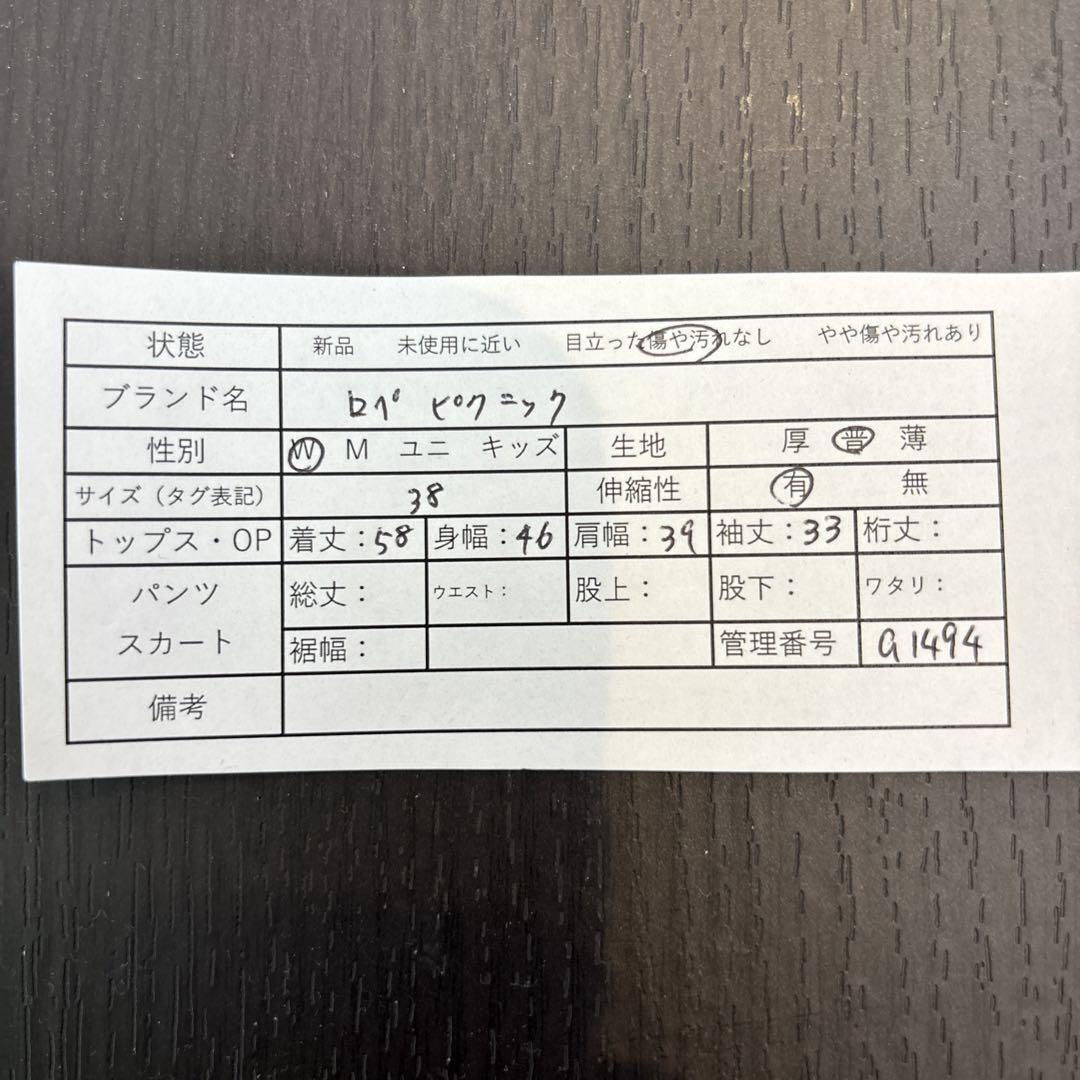 状態 新品 未使用に近い 目立った傷や汚れなし やや傷や汚れあり
ブランド名 ロペピクニック
性別 W M ユニ キッズ 生地 厚 普 薄
サイズ（タグ表記） 38 伸縮性 有 無
トップス・OP 着丈：58 身幅：46 肩幅：39 袖丈：33 裄丈：
パンツ 総丈： ウエスト： 股上： 股下： ワタリ：
スカート 裾幅： 管理番号 a1494
備考